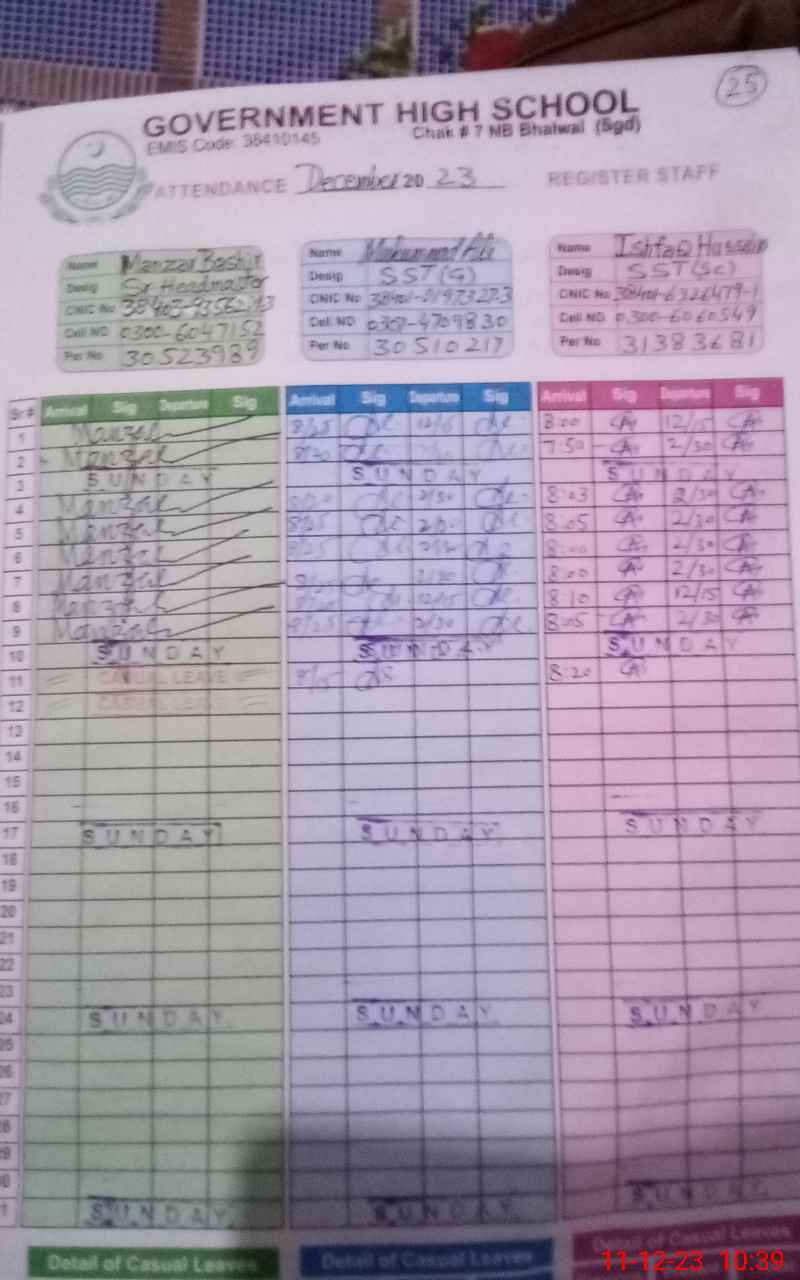 25
GOVERNMENT HIGH SCHOOL
EMIS Code: 38410145 Chak # 7 NB Bhalwal (Sgd)
ATTENDANCE December 20 23 REGISTER STAFF
Name Manzar Bashir
Desig Sr Headmaster
CNIC No
Cell NO 0300-6047152
Per No 30523989
Name Muhammad Ali
Desig SST(G)
CNIC No
Cell NO
Per No 30510217
Name Ishfaq Hussain
Desig SST(SC)
CNIC No
Cell NO 0300-6060549
Per No 31383681
Sr# Arrival Sig Departure Sig Arrival Sig Departure Sig Arrival Sig Departure Sig
1 Manzar 8/25 12/15 8:00 12/15
2 Manzar 8/20 7:50 2/30
3 SUNDAY SUNDAY SUNDAY
4 Manzar 2/30 8:03 2/30
5 Manzar 8/25 2/30 8:05 2/30
6 Manzar 8/25 2/30 8:00 2/30
7 Manzar 2/30 8:00 2/30
8 Manzar 12/15 8:10 12/15
9 Manzar 8/25 2/30 8:05 2/30
10 SUNDAY SUNDAY SUNDAY
11 CASUAL LEAVE 8/15 8:20
12 CASUAL LEAVE
13
14
15
16
17 SUNDAY SUNDAY SUNDAY
18
19
20
21
22
23
24 SUNDAY SUNDAY SUNDAY
25
26
27
28
29
30
31 SUNDAY SUNDAY SUNDAY
Detail of Casual Leaves Detail of Casual Leaves Detail of Casual Leaves
11-12-23 10:39